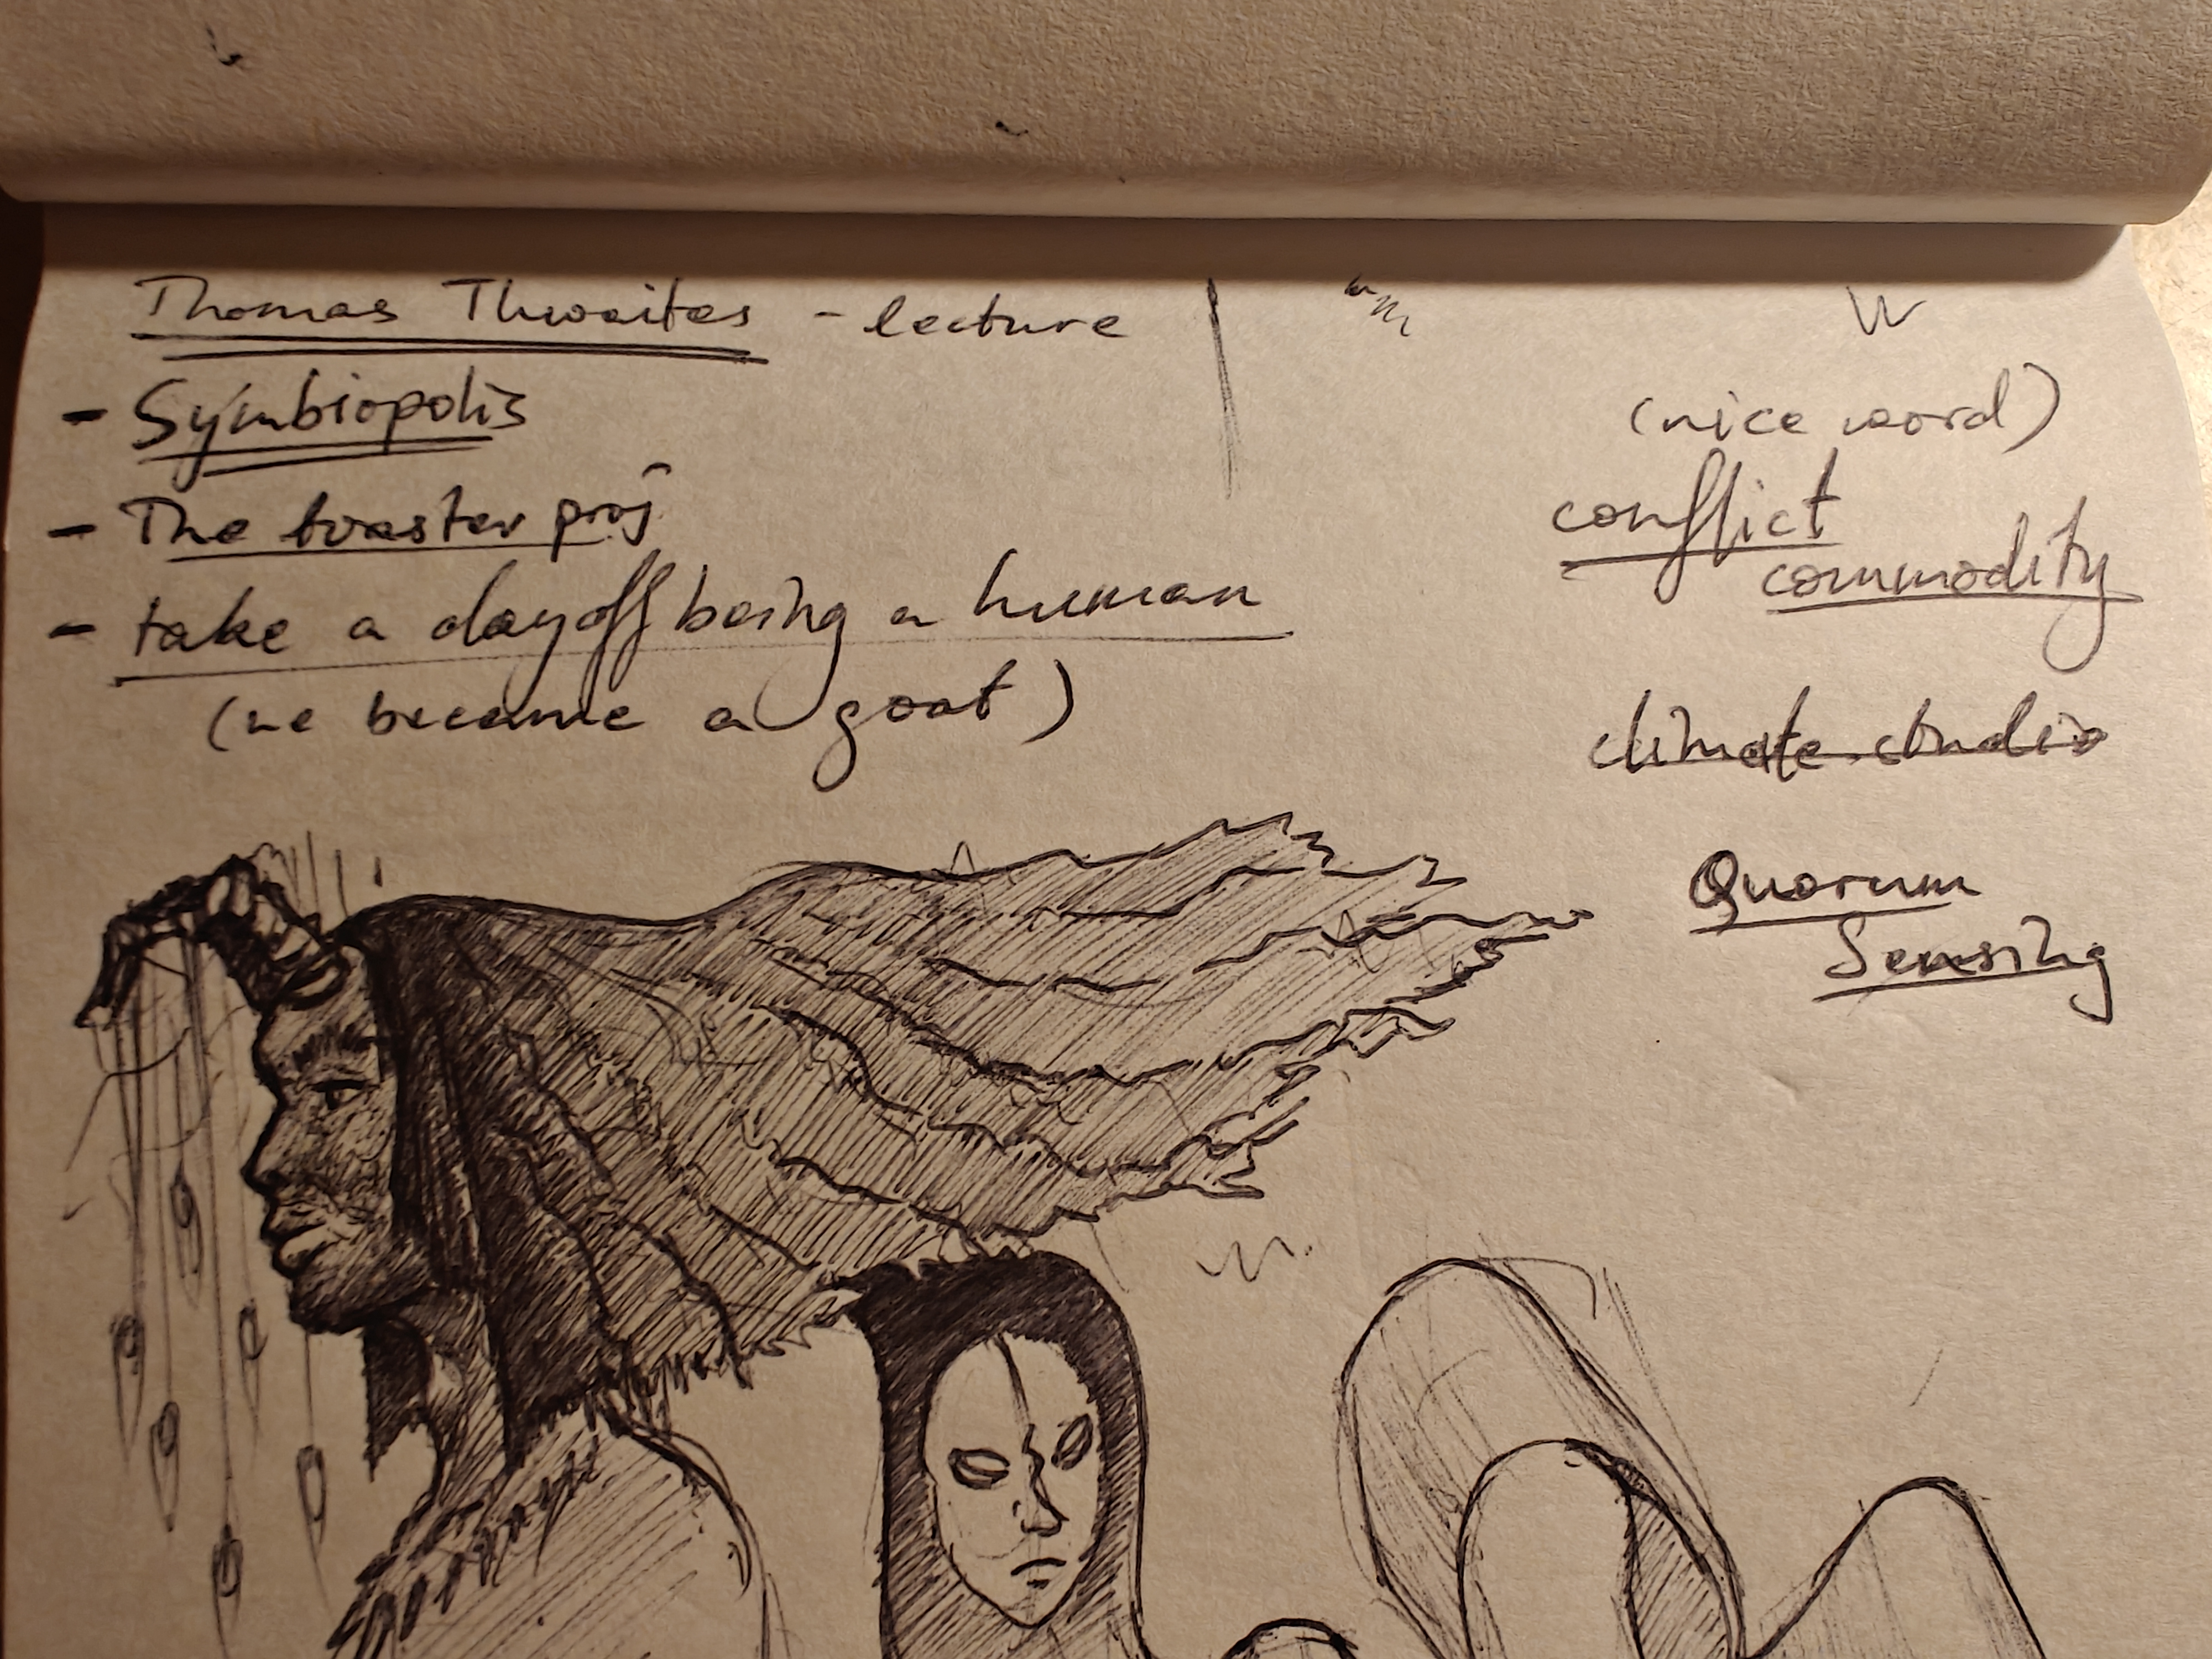 Thomas Thwaites - lecture
- Symbiopolis
- The toaster proj
- take a day off being a human
(he became a goat)
(nice word)
conflict
commodity
climate studio
Quorum
Sensing